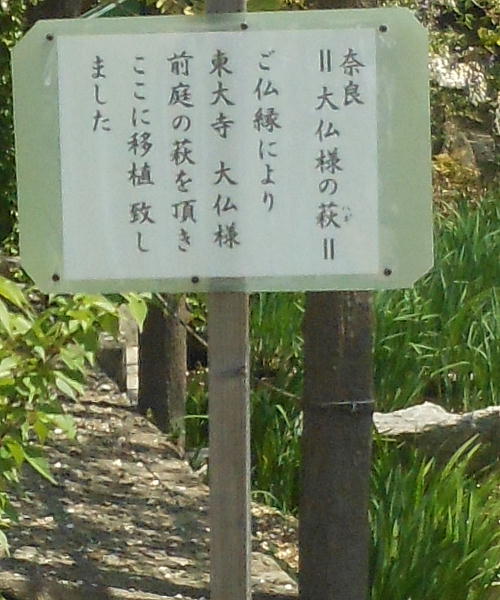 奈良
＝大仏様の萩＝
ご仏縁により
東大寺 大仏様
前庭の萩を頂き
ここに移植致し
ました